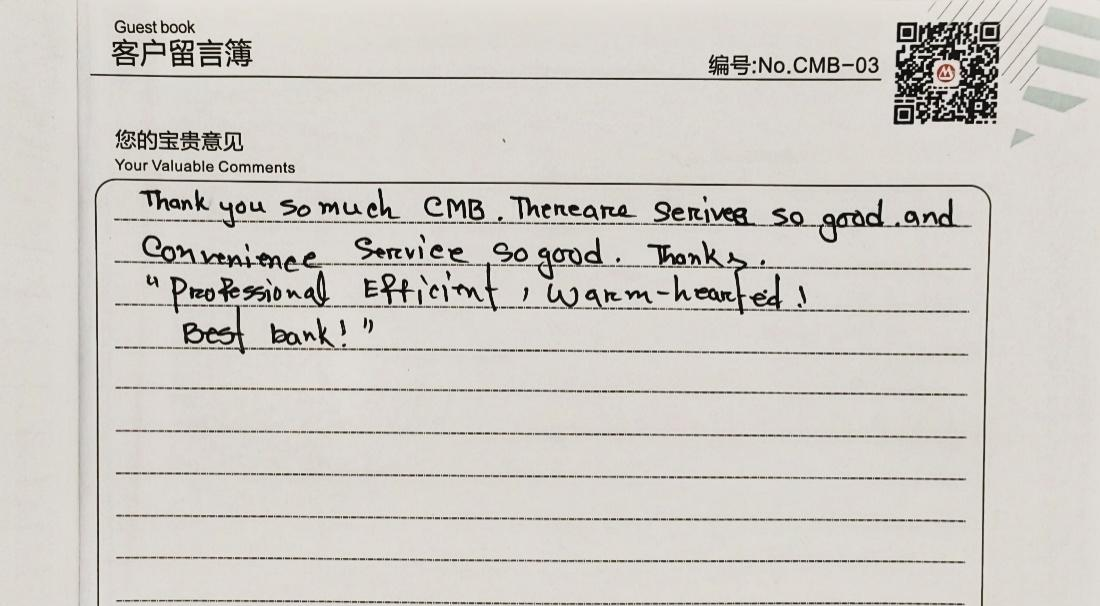 Guest book
客户留言簿
编号:No.CMB-03
您的宝贵意见
Your Valuable Comments
Thank you so much CMB. Thereare Serives so good. and
Convenience Service so good. Thanks.
"Professional Efficint, Warm-hearted!
Best bank!"